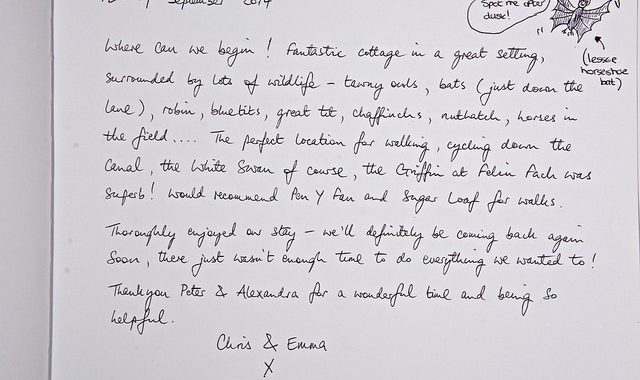 September 2014
Spot me after
dusk!
(lessee
horseshoe
bat)
Where can we begin! Fantastic cottage in a great setting,
surrounded by lots of wildlife - tawny owls, bats (just down the
lane), robin, bluetits, great tit, chaffinchs, nuthatch, horses in
the field.... The perfect location for walking, cycling down the
Canal, the White Swan of course, the Griffin at Felin Fach was
superb! Would recommend Pen Y Fan and Sugar Loaf for walks.
Thoroughly enjoyed our stay - we'll definitely be coming back again
soon, there just wasn't enough time to do everything we wanted to!
Thankyou Peter & Alexandra for a wonderful time and being so
helpful.
Chris & Emma
X